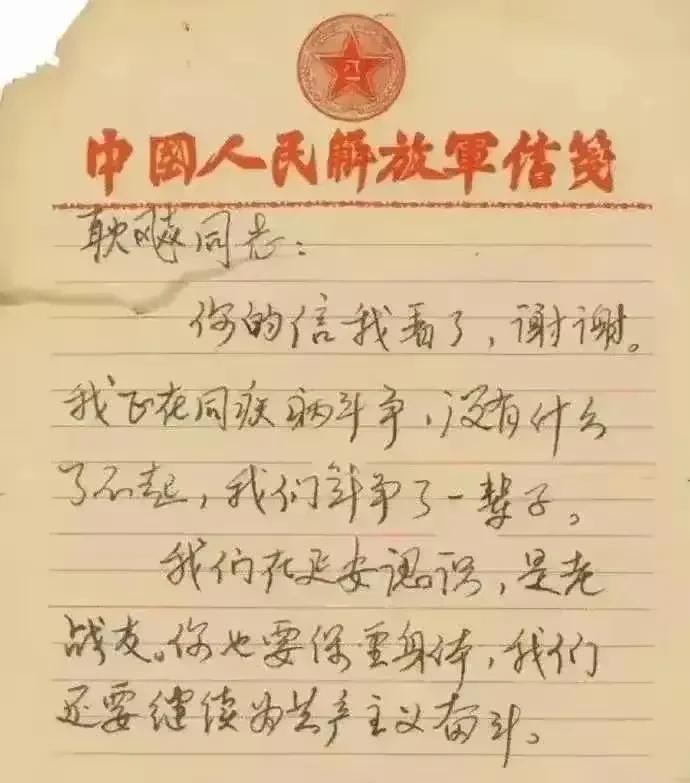 八一
中國人民解放軍信箋
耿飚同志：
你的信我看了，谢谢。
我正在同疾病斗争，没有什么
了不起，我们斗争了一辈子。
我们在延安認识，是老
战友。你也要保重身体，我们
还要继续为共产主义奋斗。